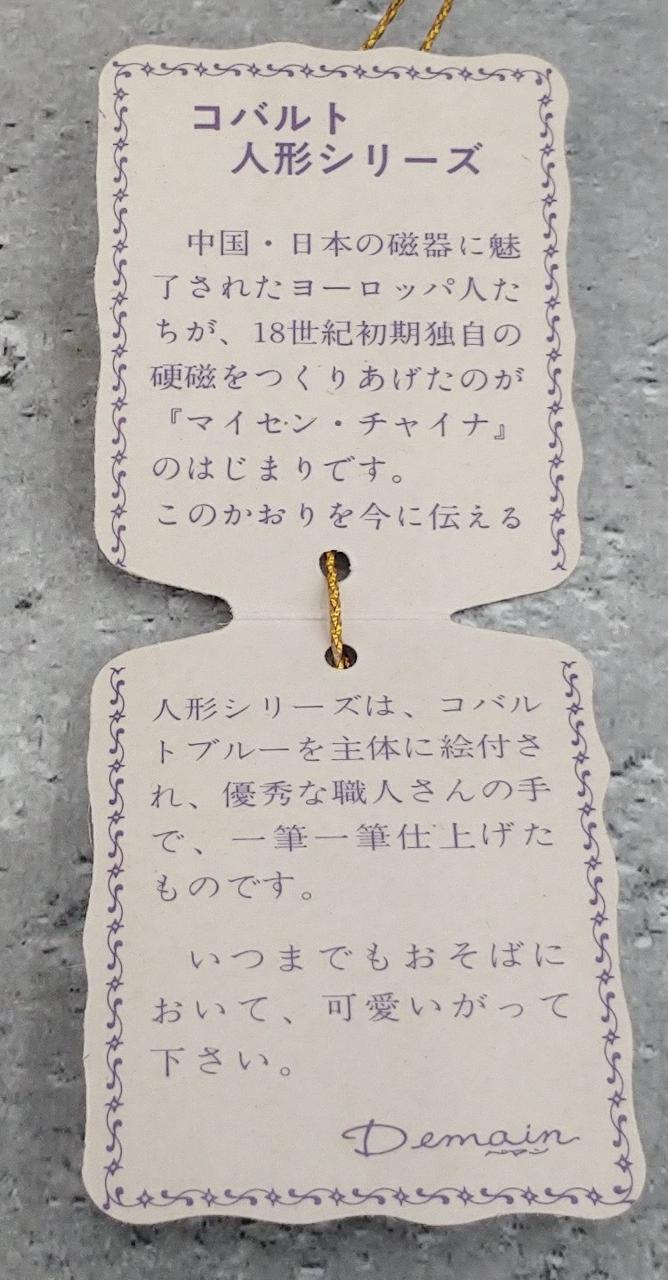 コバルト
人形シリーズ
中国・日本の磁器に魅
了されたヨーロッパ人た
ちが、18世紀初期独自の
硬磁をつくりあげたのが
『マイセン・チャイナ』
のはじまりです。
このかおりを今に伝える
人形シリーズは、コバル
トブルーを主体に絵付さ
れ、優秀な職人さんの手
で、一筆一筆仕上げた
ものです。
いつまでもおそばに
おいて、可愛いがって
下さい。
Demain